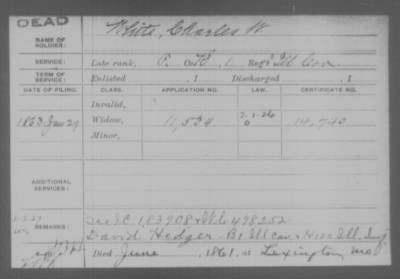 DEAD
NAME OF SOLDIER:
White, Charles W.
SERVICE:
Late rank, P. Co. H, 1 Reg't Ill Cav.
TERM OF SERVICE:
Enlisted , 1 Discharged , 1
DATE OF FILING. CLASS. APPLICATION NO. LAW. CERTIFICATE NO.
Invalid,
1863 Jan 29 Widow, 11,534 14,740
Minor,
ADDITIONAL SERVICES:
REMARKS:
See I.C. 183908 & W.C. 498252
David Hedger - B1 Ill Cav. & H 100 Ill. Inf
Died June 1861, at Lexington, Mo